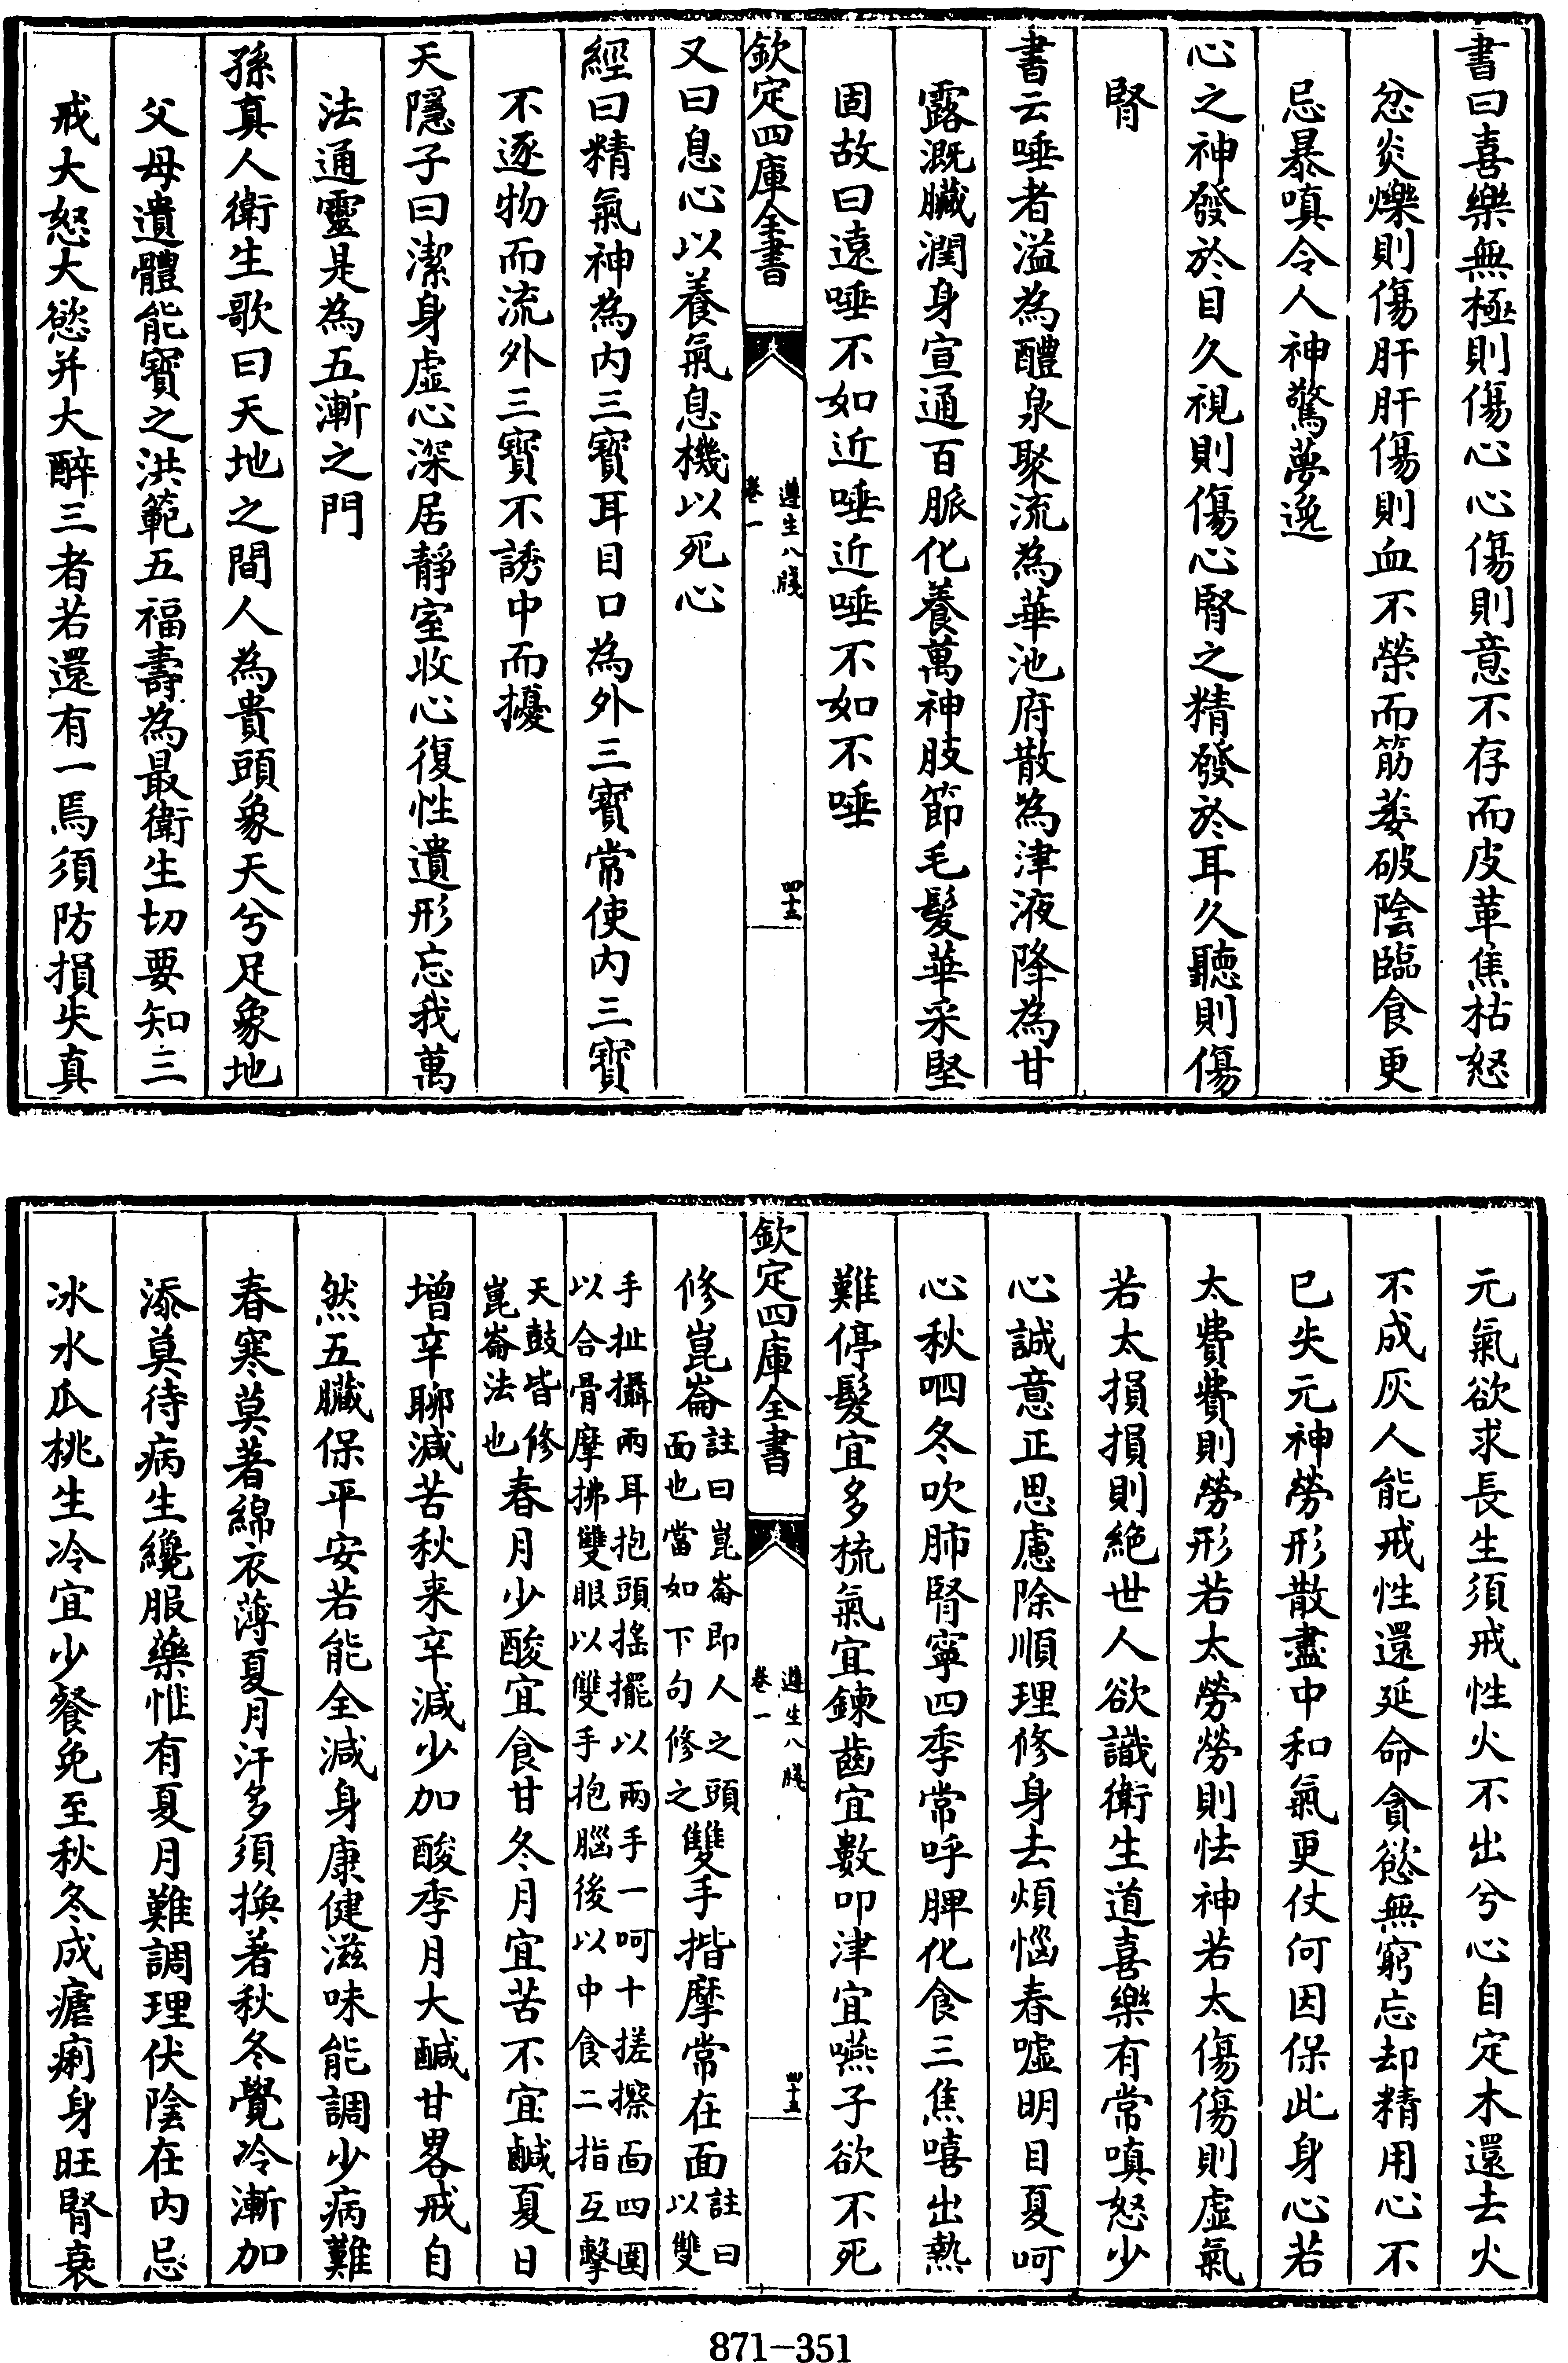 書曰喜樂無極則傷心心傷則意不存而皮革焦枯怒
忿炎爍則傷肝肝傷則血不榮而筋萎破陰臨食更
忌暴嗔令人神驚夢逸
心之神發於目久視則傷心腎之精發於耳久聽則傷
腎
書云唾者溢為醴泉聚流為華池府散為津液降為甘
露溉臟潤身宣通百脈化養萬神肢節毛髮華采堅
固故曰遠唾不如近唾近唾不如不唾
欽定四庫全書
遵生八牋
卷一
四十三
又曰息心以養氣息機以死心
經曰精氣神為内三寳耳目口為外三寳常使内三寳
不逐物而流外三寳不誘中而擾
天隱子曰潔身虛心深居靜室收心復性遺形忘我萬
法通靈是為五漸之門
孫真人衛生歌曰天地之間人為貴頭象天兮足象地
父母遺體能寳之洪範五福壽為最衛生切要知三
戒大怒大慾并大醉三者若還有一焉須防損失真
元氣欲求長生須戒性火不出兮心自定木還去火
不成灰人能戒性還延命貪慾無窮忘却精用心不
已失元神勞形散盡中和氣更仗何因保此身心若
太費費則勞形若太勞勞則怯神若太傷傷則虛氣
若太損損則絶世人欲識衛生道喜樂有常嗔怒少
心誠意正思慮除順理修身去煩惱春噓明目夏呵
心秋呬冬吹肺腎寧四季常呼脾化食三焦嘻出熱
難停髮宜多梳氣宜鍊齒宜數叩津宜嚥子欲不死
欽定四庫全書
遵生八牋
卷一
四十五
修崑崙註曰崑崙即人之頭面也當如下句修之雙手揩摩常在面註曰以雙
手扯攝兩耳抱頭搖擺以兩手一呵十搓擦面四圍以合骨摩拂雙眼以雙手抱腦後以中食二指互擊
天鼓皆修崑崙法也春月少酸宜食甘冬月宜苦不宜鹹夏日
增辛聊減苦秋来辛減少加酸季月大鹹甘畧戒自
然五臟保平安若能全減身康健滋味能調少病難
春寒莫著綿衣薄夏月汗多須換著秋冬覺冷漸加
添莫待病生纔服藥惟有夏月難調理伏陰在内忌
冰水瓜桃生冷宜少餐免至秋冬成瘧痢身旺腎衰
871-351